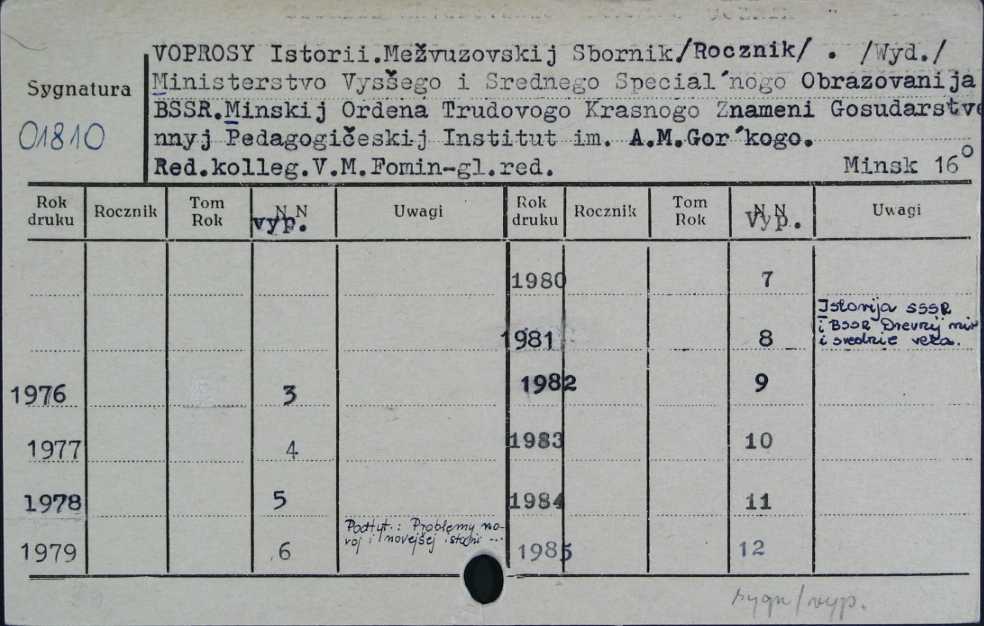 VOPROSY Istorii.Mežvuzovskij Sbornik/Rocznik/ . /Wyd./
Ministerstvo Vysšego i Srednego Special´nogo Obrazovanija
Sygnatura
BSSR.Minskij Ordena Trudovogo Krasnogo Znameni Gosudarstve
01810
nnyj Pedagogičeskij Institut im. A.M.Gor´kogo.
Red.kolleg.V.M.Fomin-gl.red. Minsk 16°
Rok druku Rocznik Tom Rok N N vyp. Uwagi Rok druku Rocznik Tom Rok N N Vyp. Uwagi
1980 7
Istorija SSSR
i BSSR Drevnij mir
i srednie veka.
1981 8
1976 3 1982 9
1977 4 1983 10
1978 5 1984 11
Podtyt.: Problemy no-
voj i novejšej istorii ...
1979 6 1985 12
sygn/vyp.